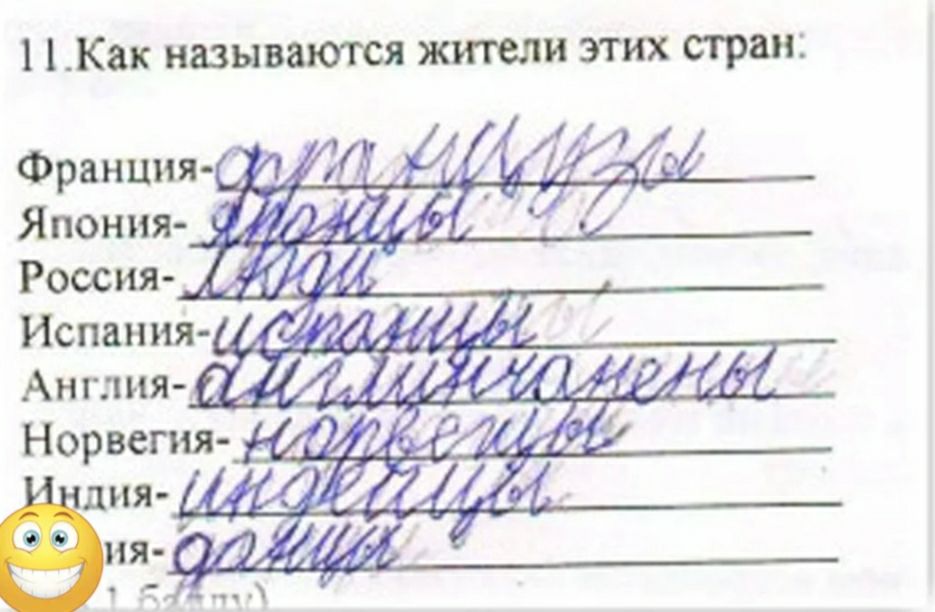 11.Как называются жители этих стран:
Франция-французы
Япония-японцы
Россия-люди
Испания-испанцы
Англия-англинчанены
Норвегия-норвегцы
Индия-индейцы
ия-данцы
1 баллу)